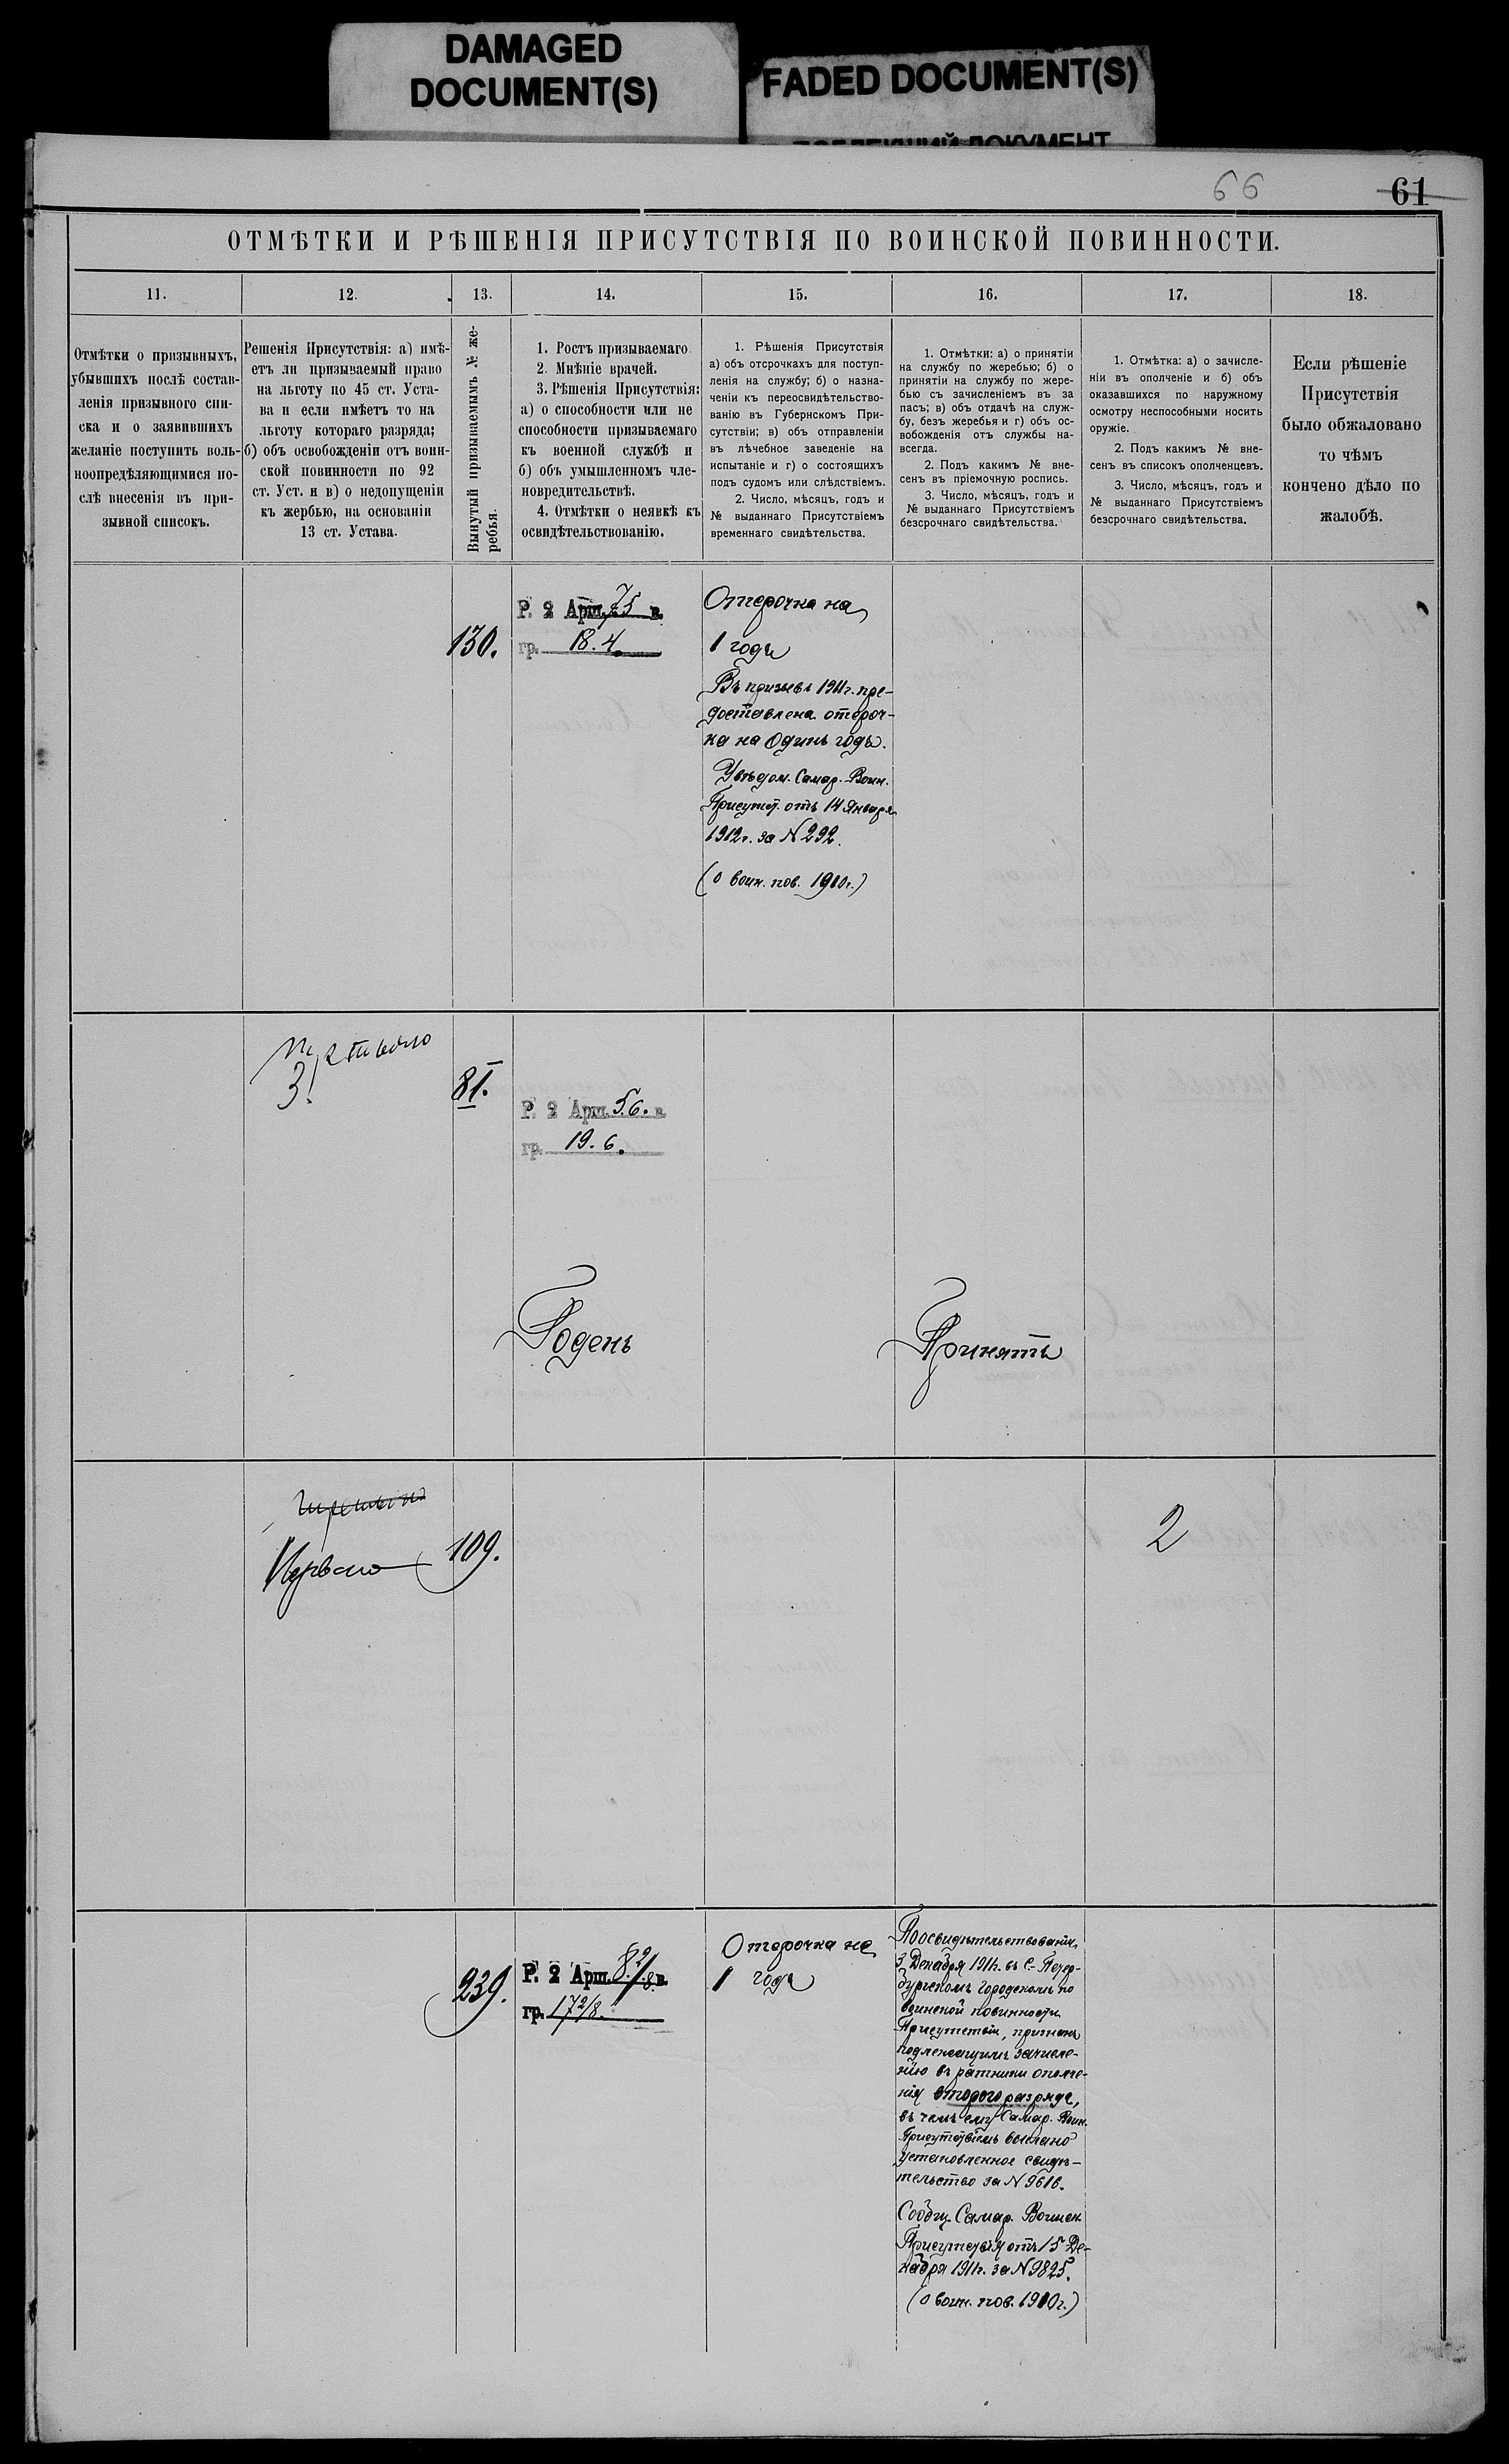 DAMAGED
DOCUMENT(S)
FADED DOCUMENT(S)
ДОКУМЕНТ
66
61
ОТМѢТКИ И РѢШЕНІЯ ПРИСУТСТВІЯ ПО ВОИНСКОЙ ПОВИННОСТИ.
11.
12.
13.
14.
15.
16.
17.
18.
Отмѣтки о призывныхъ,
убывшихъ послѣ состав-
ленія призывного спи-
ска и о заявившихъ
желаніе поступить воль-
ноопредѣляющимися по-
слѣ внесенія въ при-
зывной списокъ.
Решенія Присутствія: а) имѣ-
етъ ли призываемый право
на льготу по 45 ст. Уста-
ва и если имѣетъ то на
льготу котораго разряда;
б) объ освобожденіи отъ воин-
ской повинности по 92
ст. Уст. и в) о недопущеніи
къ жербью, на основаніи
13 ст. Устава.
Вынутый призываемымъ № же-
ребья.
1. Ростъ призываемаго
2. Мнѣніе врачей.
3. Рѣшенія Присутствія:
а) о способности или не
способности призываемаго
къ военной службѣ и
б) объ умышленномъ чле-
новредительствѣ.
4. Отмѣтки о неявкѣ къ
освидѣтельствованію.
1. Рѣшенія Присутствія
а) объ отсрочкахъ для поступ-
ленія на службу; б) о назна-
ченіи къ переосвидѣтельство-
ванію въ Губернскомъ При-
сутствіи; в) объ отправленіи
въ лѣчебное заведеніе на
испытаніе и г) о состоящихъ
подъ судомъ или слѣдствіемъ.
2. Число, мѣсяцъ, годъ и
№ выданнаго Присутствіемъ
временнаго свидѣтельства.
1. Отмѣтки: а) о принятіи
на службу по жеребью; б) о
принятіи на службу по жере-
бью съ зачисленіемъ въ за
пасъ; в) объ отдачѣ на служ-
бу, безъ жеребья и г) объ ос-
вобожденія отъ службы на-
всегда.
2. Подъ какимъ № вне-
сенъ въ пріемочную роспись.
3. Число, мѣсяцъ, годъ и
№ выданнаго Присутствіемъ
безсрочнаго свидѣтельства.
1. Отмѣтка: а) о зачисле-
ніи въ ополченіе и б) объ
оказавшихся по наружному
осмотру неспособными носить
оружіе.
2. Подъ какимъ № вне-
сенъ въ списокъ ополченцевъ.
3. Число, мѣсяцъ, годъ и
№ выданнаго Присутствіемъ
безсрочнаго свидѣтельства.
Если рѣшеніе
Присутствія
было обжаловано
то чѣмъ
кончено дѣло по
жалобѣ.
130.
Р. 2 Арш. 75 в.
гр. 18.4.
Отсрочка на
1 годъ
Въ призывъ 1911г. пре-
доставлена отсроч-
ка на одинъ годъ.
Увѣдом. Самар. Воин.
Присутст. отъ 14 Января
1912г. за N 292.
(о воин. пов. 1910г.)
3.
81.
Р. 2 Арш. 5.6. в.
гр. 19.6.
Годенъ
Принятъ
Перваго
109.
2
239.
Р. 2 Арш. 8.2/8 в.
гр. 17 2/8.
Отсрочка на
1 годъ
По освидѣтельствованіи,
3 Декабря 1911г. въ С-Петер-
бургскомъ городскомъ по
воинской повинности
Присутствіи, признанъ
подлежащимъ зачисле-
нію въ ратники ополче-
нія второго разряда,
въ чемъ ему Самар. Воин.
Присутствіемъ выслано
установленное свидѣ-
тельство за N 9616.
Сообщ. Самар. Воинск.
Присутствія отъ 15 Де-
кабря 1911г. за N 9825.
(о воин. пов. 1910г.)